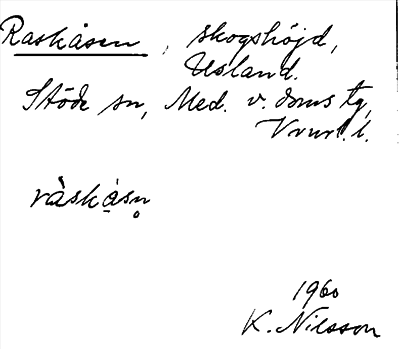 Raskåsen, skogshöjd,
Usland.
Stöde sn, Med. v. doms tg,
Vnrl. l.
ràskåsn̥
1960
K. Nilsson